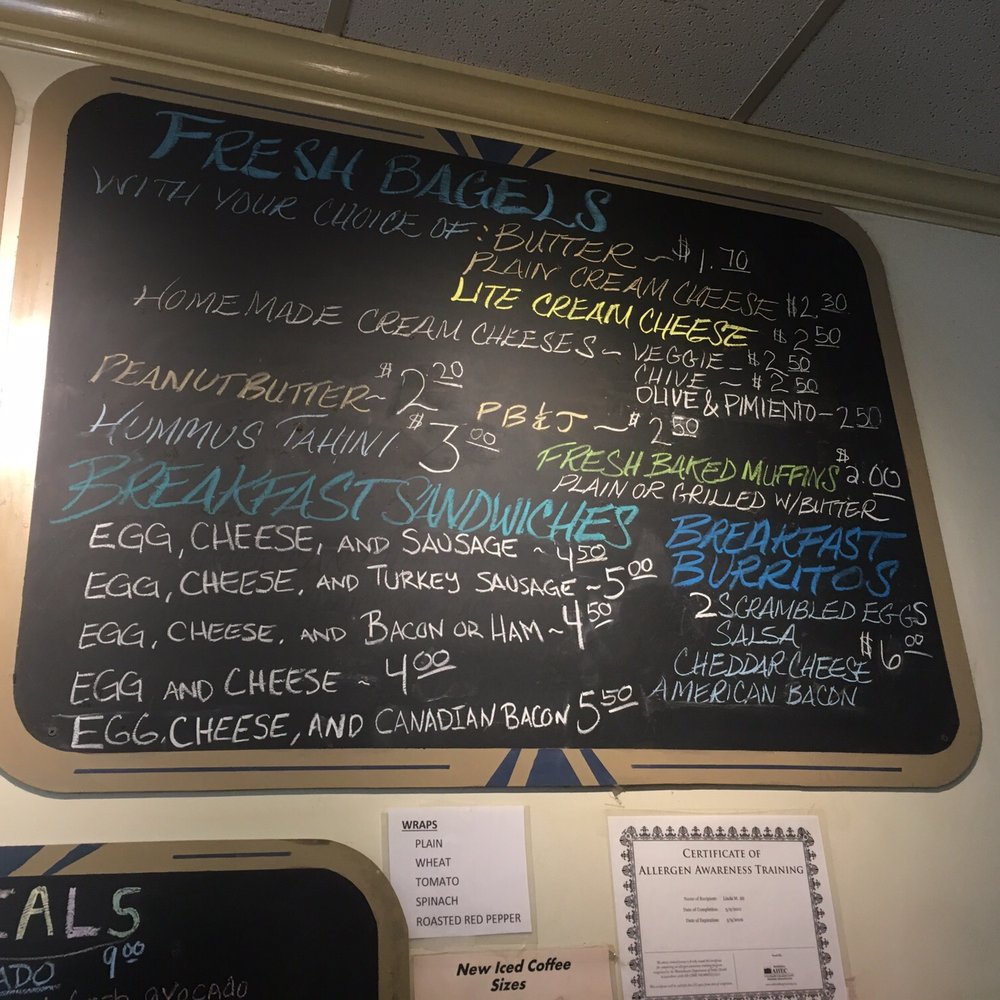 FRESH BAGELS
WITH YOUR CHOICE OF: BUTTER ~ $1.70
PLAIN CREAM CHEESE $2.30
LITE CREAM CHEESE $2.50
HOMEMADE CREAM CHEESES ~ VEGGIE - $2.50
CHIVE ~ $2.50
OLIVE & PIMIENTO - 2.50
PEANUT BUTTER ~ $2.20
PB & J ~ $2.50
HUMMUS TAHINI $3.00
FRESH BAKED MUFFINS $2.00
PLAIN OR GRILLED W/BUTTER
BREAKFAST SANDWICHES
EGG, CHEESE, AND SAUSAGE ~ 4.50
EGG, CHEESE, AND TURKEY SAUSAGE ~ 5.00
EGG, CHEESE, AND BACON OR HAM ~ 4.50
EGG AND CHEESE ~ 4.00
EGG, CHEESE, AND CANADIAN BACON 5.50
BREAKFAST
BURRITOS
2 SCRAMBLED EGGS
SALSA $6.00
CHEDDAR CHEESE
AMERICAN BACON
WRAPS
PLAIN
WHEAT
TOMATO
SPINACH
ROASTED RED PEPPER
CERTIFICATE OF
ALLERGEN AWARENESS TRAINING
Name of Recipient:
Date of Completion:
Date of Expiration:
New Iced Coffee
Sizes
EALS
ADO 9.00
avocado